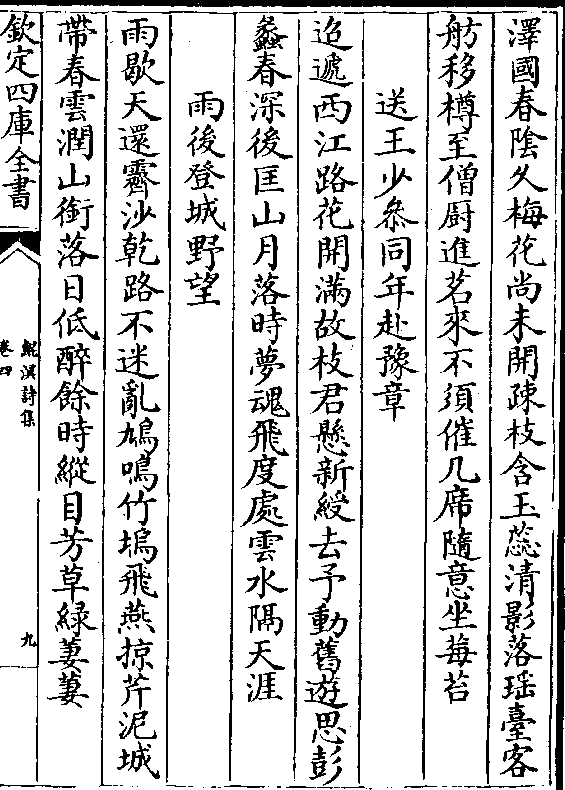 澤國春陰久梅花尚未開疎枝含玉蕊清影落瑶臺客
舫移樽至僧厨進茗來不須催几席隨意坐莓苔
送王少叅同年赴豫章
迢遞西江路花開滿故枝君懸新綬去予動舊遊思彭
蠡春深後匡山月落時夢魂飛度處雲水隔天涯
雨後登城野望
雨歇天還霽沙乾路不迷亂鳩鳴竹塢飛燕掠芹泥城
帶春雲潤山銜落日低醉餘時縱目芳草緑萋萋
欽定四庫全書
鯤溟詩集
卷四
九